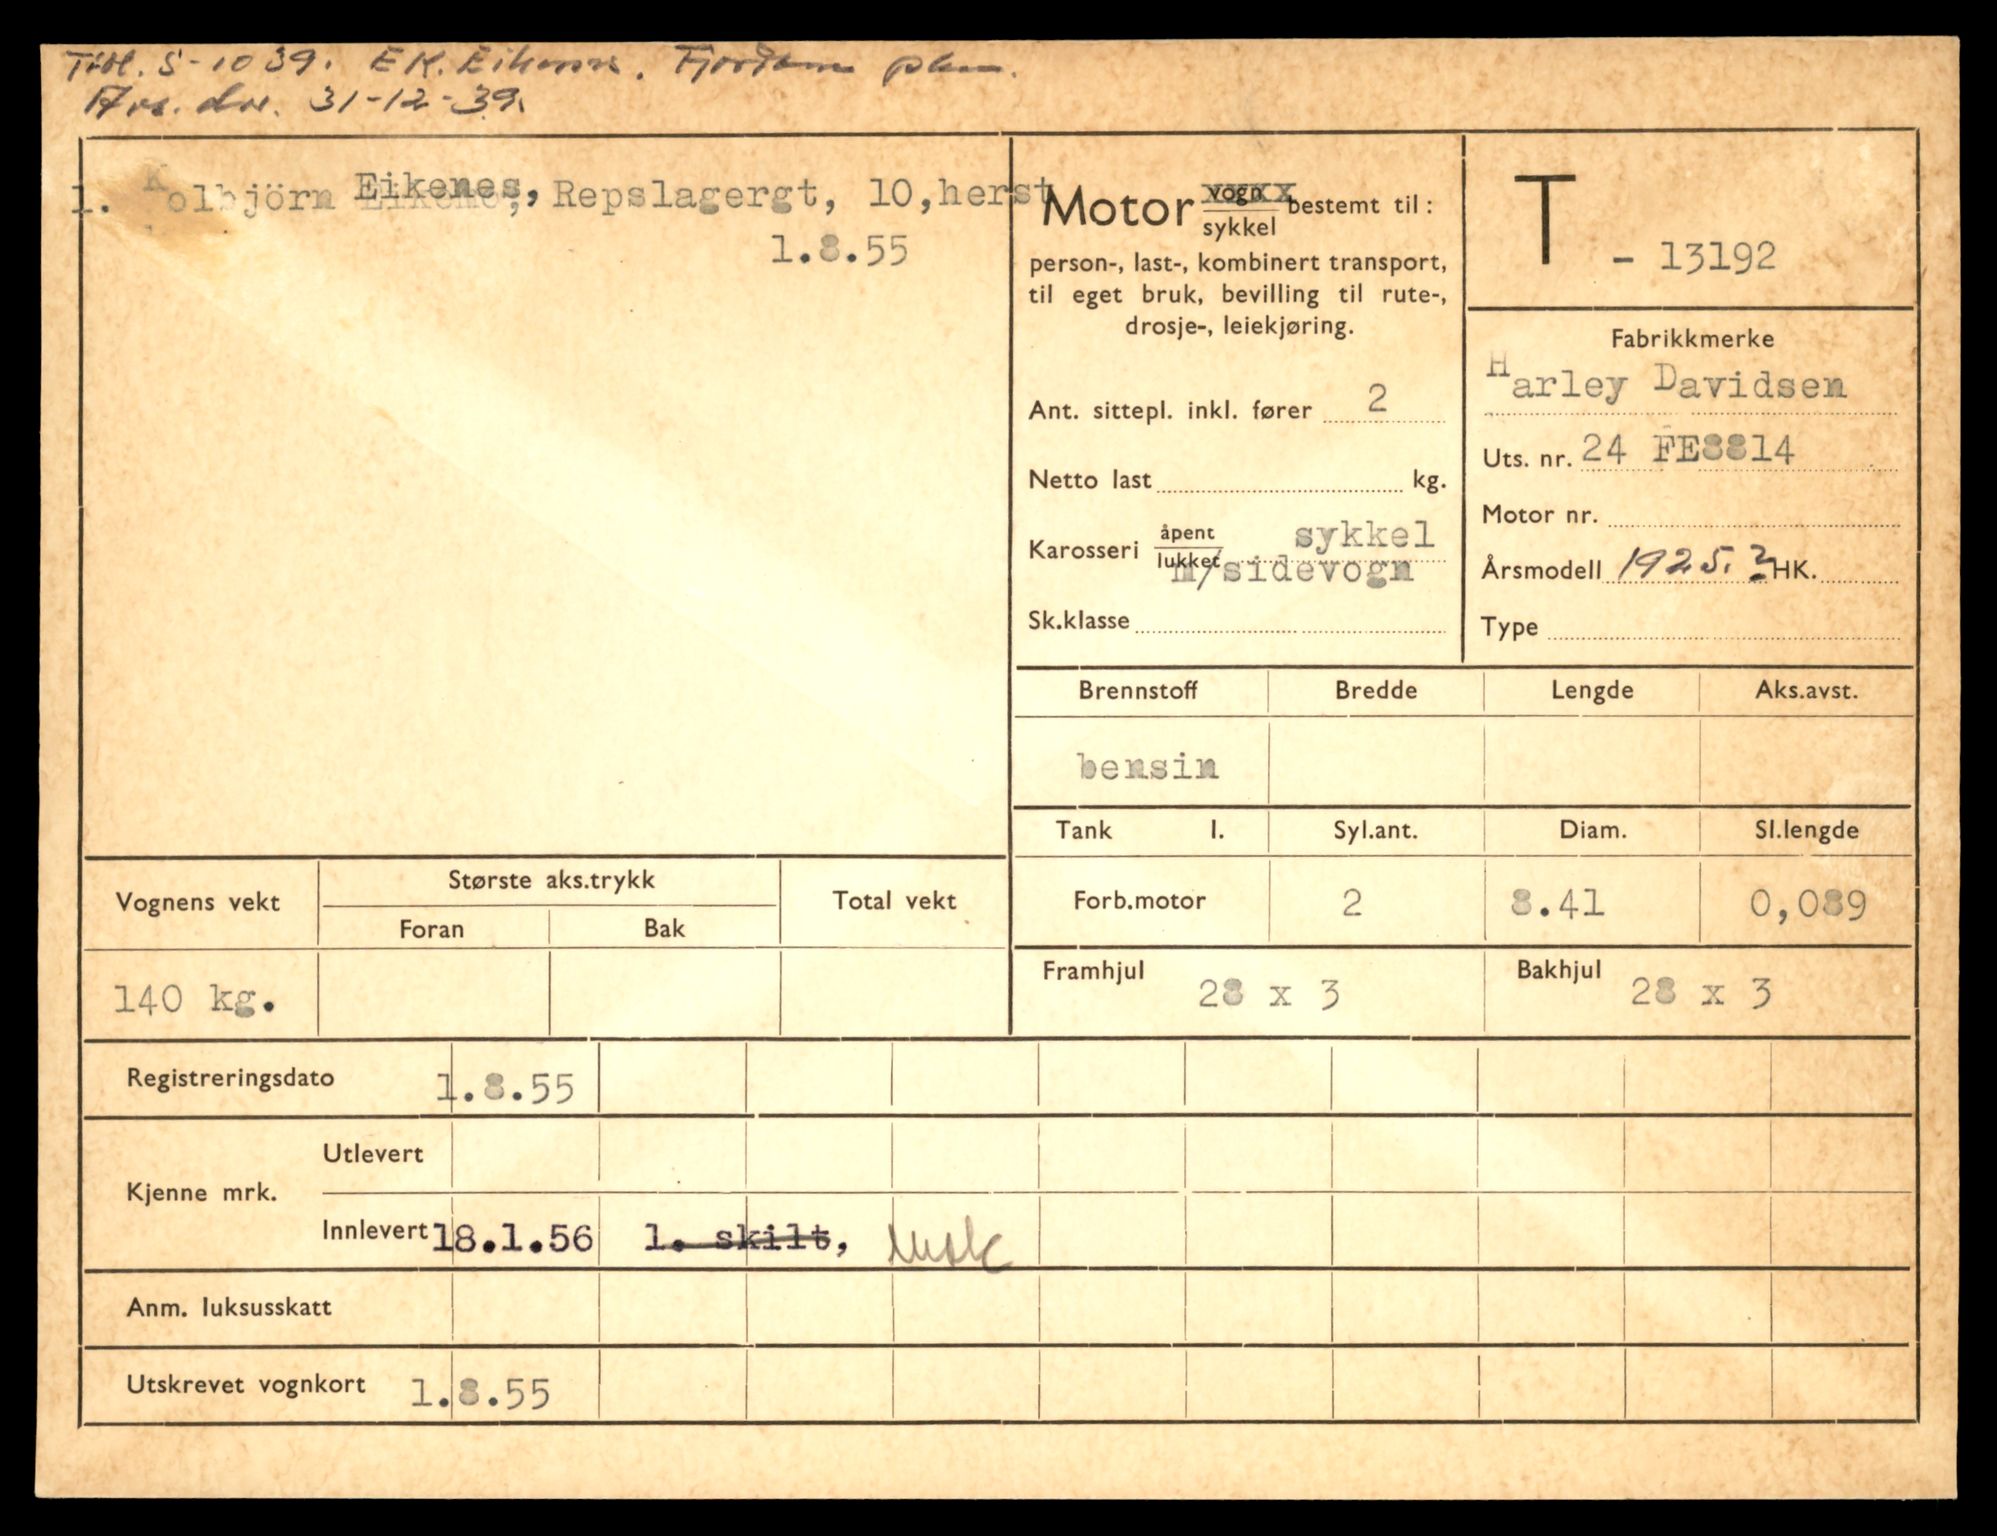 S-1039. E.K. Eikenes. Fjordane
31-12-39.
1. Kolbjörn Eikenes, Repslagergt, 10, herst
1.8.55
Motor vogn xxxx sykkel bestemt til:
person-, last-, kombinert transport,
til eget bruk, bevilling til rute-,
drosje-, leiekjøring.
Ant. sittepl. inkl. fører 2
Netto last kg.
Karosseri åpent lukket sykkel
m/sidevogn
Sk.klasse
T - 13192
Fabrikkmerke
Harley Davidsen
Uts. nr. 24 FE8814
Motor nr.
Årsmodell 1925. ? HK.
Type
Brennstoff Bredde Lengde Aks.avst.
bensin
Tank l. Syl.ant. Diam. Sl.lengde
Forb.motor 2 8.41 0,089
Framhjul 28 x 3 Bakhjul 28 x 3
Vognens vekt Største aks.trykk Total vekt
Foran Bak
140 kg.
Registreringsdato 1.8.55
Kjenne mrk. Utlevert
Innlevert 18.1.56 1. skilt,
Anm. luksusskatt
Utskrevet vognkort 1.8.55